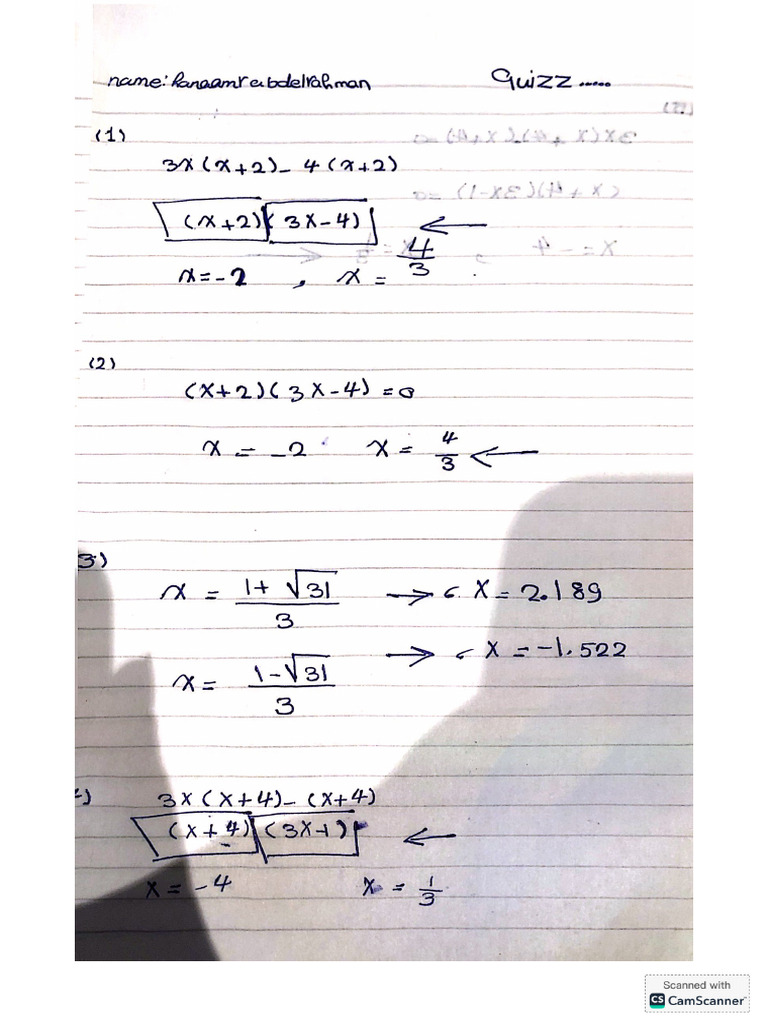 name: Hanaamr abdelrahman Quizz......
(1)
3x(x+2)-4(x+2)
(x+2)(3x-4) ←
x=-2 , x = 4/3
(2)
(x+2)(3x-4)=0
x = -2 x = 4/3 ←
3)
x = 1+√31/3 → x = 2.189
x = 1-√31/3 → x = -1.522
3x(x+4)-(x+4)
(x+4)(3x-1) ←
x = -4 x = 1/3
Scanned with
CS CamScanner